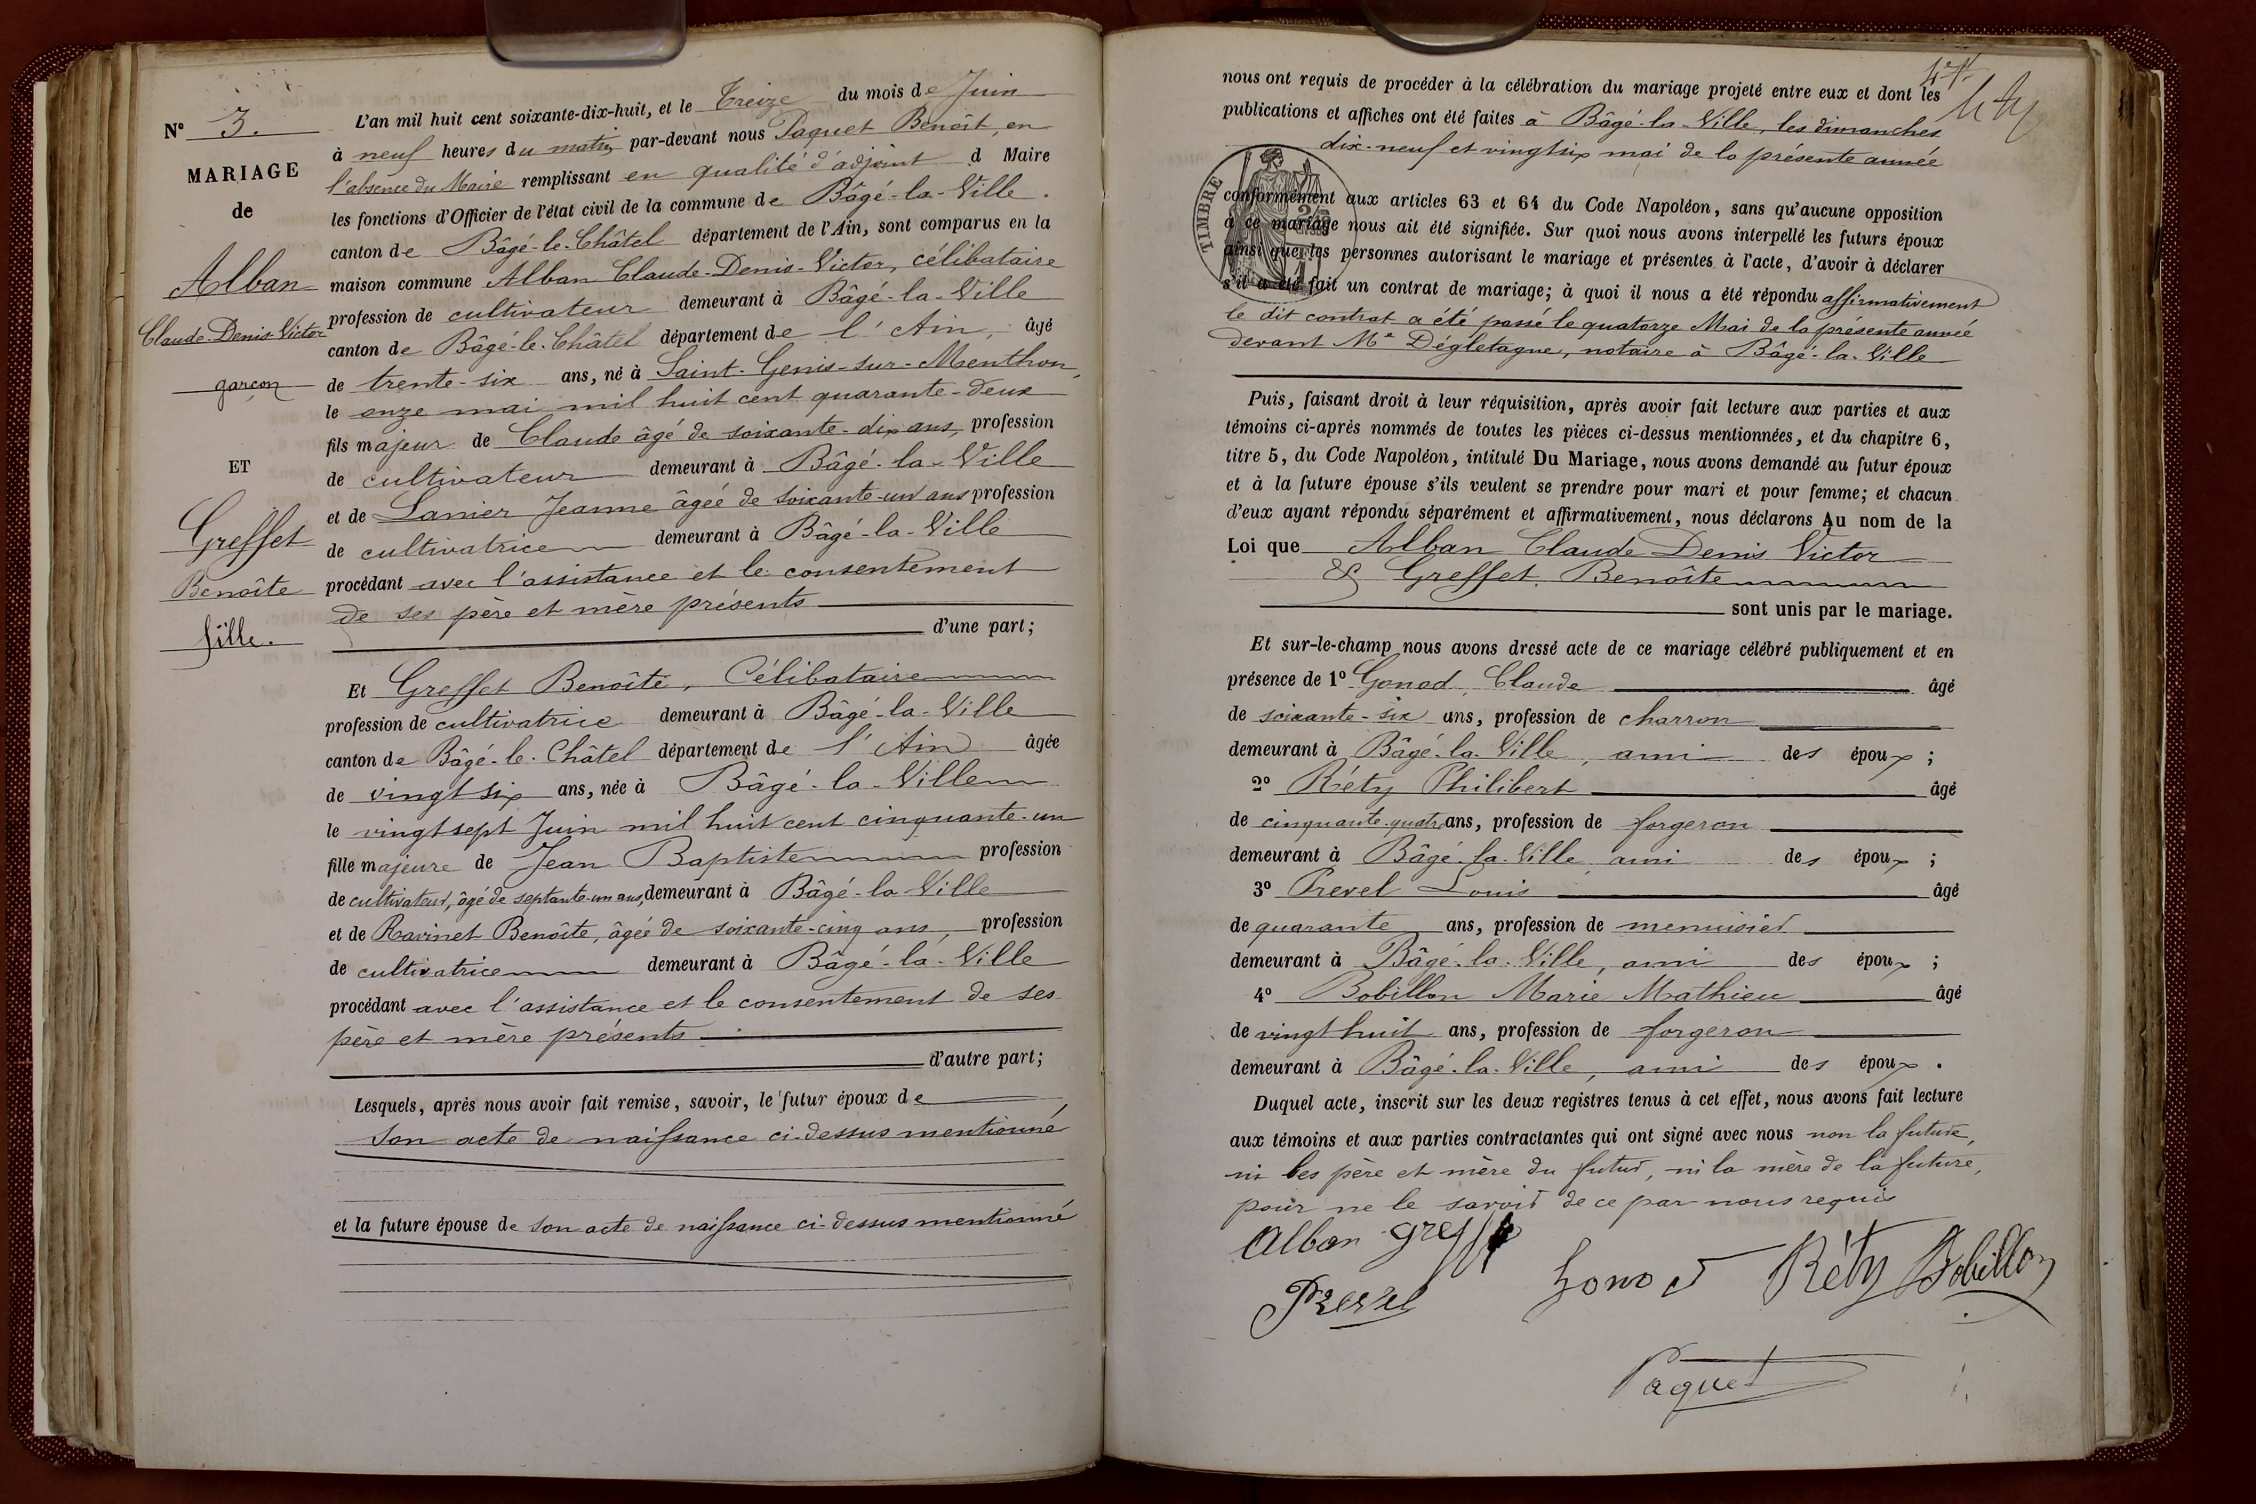 N° 3.
MARIAGE
de
Alban
Claude-Denis-Victor
garçon
ET
Greffet
Benoîte
fille.
L'an mil huit cent soixante-dix-huit, et le Treize du mois de Juin
à neuf heures du matin par-devant nous Paquet Benoît, en
l'absence du Maire remplissant en qualité d'adjoint d Maire
les fonctions d'Officier de l'état civil de la commune de Bâgé-la-Ville.
canton de Bâgé-le-Châtel département de l'Ain, sont comparus en la
maison commune Alban Claude-Denis-Victor, célibataire
profession de cultivateur demeurant à Bâgé-la-Ville
canton de Bâgé-le-Châtel département de l'Ain, âgé
de trente-six ans, né à Saint-Genis-sur-Menthon,
le onze mai mil huit cent quarante-deux
fils majeur de Claude âgé de soixante-dix ans, profession
de cultivateur demeurant à Bâgé-la-Ville
et de Lanier Jeanne âgée de soixante-un ans profession
de cultivatrice demeurant à Bâgé-la-Ville
procédant avec l'assistance et le consentement
de ses père et mère présents
d'une part;
Et Greffet Benoîte, Célibataire
profession de cultivatrice demeurant à Bâgé-la-Ville
canton de Bâgé-le-Châtel département de l'Ain âgée
de vingt six ans, née à Bâgé-la-Ville
le vingt sept Juin mil huit cent cinquante-un
fille majeure de Jean Baptiste profession
de cultivateur, âgé de septante-un ans, demeurant à Bâgé-la-Ville
et de Ravinet Benoîte, âgée de soixante-cinq ans, profession
de cultivatrice demeurant à Bâgé-la-Ville
procédant avec l'assistance et le consentement de ses
père et mère présents.
d'autre part;
Lesquels, après nous avoir fait remise, savoir, le futur époux de
son acte de naissance ci-dessus mentionné
et la future épouse de son acte de naissance ci-dessus mentionné
47
nous ont requis de procéder à la célébration du mariage projeté entre eux et dont les
publications et affiches ont été faites à Bâgé-la-Ville, les dimanches
dix-neuf et vingt six mai de la présente année
TIMBRE
conformément aux articles 63 et 64 du Code Napoléon, sans qu'aucune opposition
à ce mariage nous ait été signifiée. Sur quoi nous avons interpellé les futurs époux
ainsi que les personnes autorisant le mariage et présentes à l'acte, d'avoir à déclarer
s'il a été fait un contrat de mariage; à quoi il nous a été répondu affirmativement
le dit contrat a été passé le quatorze Mai de la présente année
devant Me Dégletagne, notaire à Bâgé-la-Ville
Puis, faisant droit à leur réquisition, après avoir fait lecture aux parties et aux
témoins ci-après nommés de toutes les pièces ci-dessus mentionnées, et du chapitre 6,
titre 5, du Code Napoléon, intitulé Du Mariage, nous avons demandé au futur époux
et à la future épouse s'ils veulent se prendre pour mari et pour femme; et chacun
d'eux ayant répondu séparément et affirmativement, nous déclarons Au nom de la
Loi que Alban Claude Denis Victor
& Greffet Benoîte
sont unis par le mariage.
Et sur-le-champ nous avons dressé acte de ce mariage célébré publiquement et en
présence de 1° Gonod, Claude âgé
de soixante-six ans, profession de charron
demeurant à Bâgé-la-Ville, ami des époux;
2° Réty Philibert âgé
de cinquante-quatre ans, profession de forgeron
demeurant à Bâgé-la-Ville, ami des époux;
3° Prevel Louis âgé
de quarante ans, profession de menuisier
demeurant à Bâgé-la-Ville, ami des époux;
4° Bobillon Marie Mathieu âgé
de vingt huit ans, profession de forgeron
demeurant à Bâgé-la-Ville, ami des époux.
Duquel acte, inscrit sur les deux registres tenus à cet effet, nous avons fait lecture
aux témoins et aux parties contractantes qui ont signé avec nous non la future,
ni les père et mère du futur, ni la mère de la future,
pour ne le savoir de ce par nous requis
Alban Greffet
Prevel Gonod Réty Bobillon
Paquet